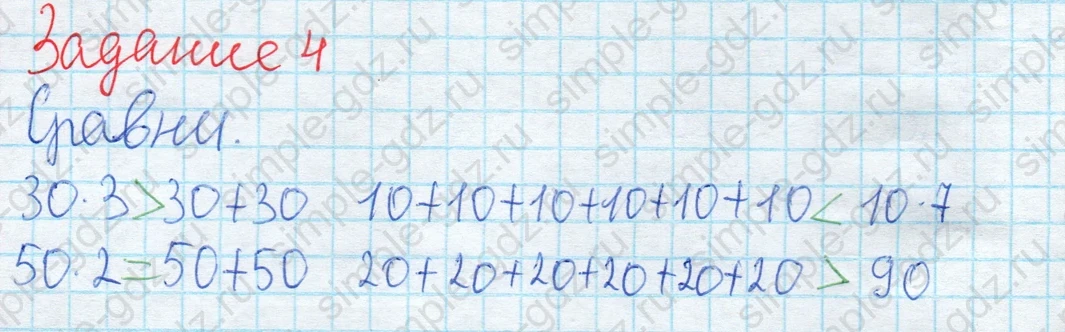 Задание 4
Сравни.
30·3>30+30 10+10+10+10+10+10<10·7
50·2=50+50 20+20+20+20+20+20>90
simple-gdz.ru